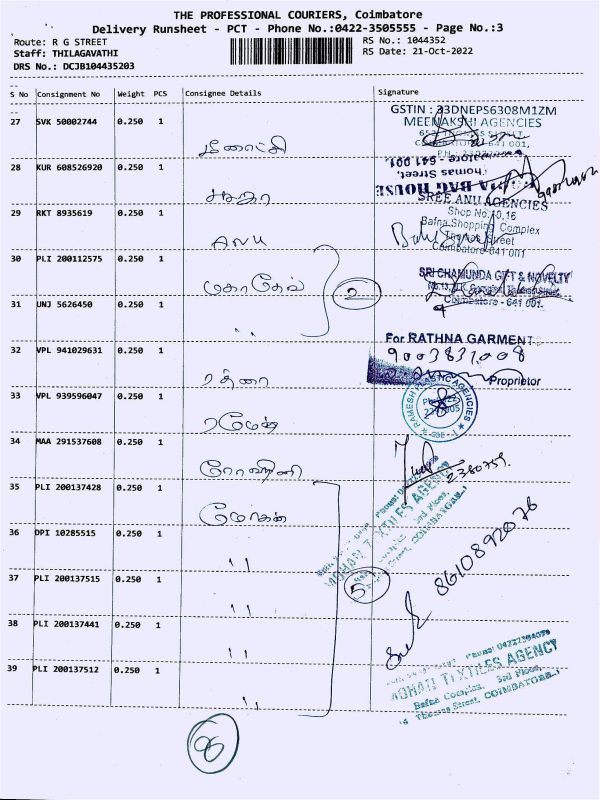 THE PROFESSIONAL COURIERS, Coimbatore
Delivery Runsheet - PCT - Phone No.:0422-3505555 - Page No.:3
Route: R G STREET
RS No.: 1044352
Staff: THILAGAVATHI
RS Date: 21-Oct-2022
DRS No.: DCJB104435203
S No Consignment No Weight PCS Consignee Details Signature
27 SVK 50002744 0.250 1 மீனாட்சி
GSTIN : 33DNEPS6308M1ZM
MEENAKSHI AGENCIES
28 KUR 608526920 0.250 1 சுஜா
Thomas Street, Coimbatore - 641 001.
BAG HOUSE
29 RKT 8935619 0.250 1 ANU
SREE ANU AGENCIES
Shop No.10,16
Bafna Shopping Complex
Thomas Street
Coimbatore-641 001
30 PLI 200112575 0.250 1 மகாதேவ்
2
SRI CHAMUNDA GIFT & NOVELTY
Coimbatore - 641 001.
31 UNJ 5626450 0.250 1 ,,
32 VPL 941029631 0.250 1 ரத்னா
For RATHNA GARMENT
Proprietor
33 VPL 939596047 0.250 1 ரமேஷ்
RAMESH PLASTIC AGENCIES
34 MAA 291537608 0.250 1 ரோஷினி
2380759
35 PLI 200137428 0.250 1 மோகன்
MOHAN TEXTILES AGENCY
3rd Floor,
COIMBATORE-1
36 DPI 10285515 0.250 1 ,,
37 PLI 200137515 0.250 1 ,,
5
8610892076
38 PLI 200137441 0.250 1 ,,
39 PLI 200137512 0.250 1 ,,
MOHAN TEXTILES AGENCY
Bafna Complex, 3rd Floor,
Thomas Street, COIMBATORE-1